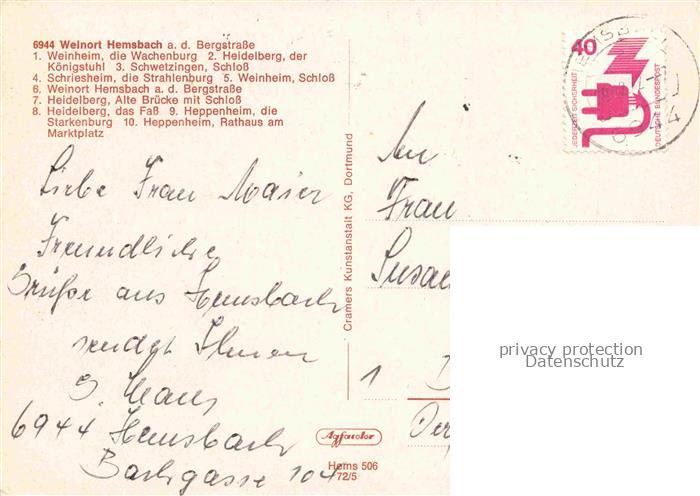 6944 Weinort Hemsbach a. d. Bergstraße
1. Weinheim, die Wachenburg 2. Heidelberg, der
Königstuhl 3. Schwetzingen, Schloß
4. Schriesheim, die Strahlenburg 5. Weinheim, Schloß
6. Weinort Hemsbach a. d. Bergstraße
7. Heidelberg, Alte Brücke mit Schloß
8. Heidelberg, das Faß 9. Heppenheim, die
Starkenburg 10. Heppenheim, Rathaus am
Marktplatz
Liebe Frau Maier
Freundliche
Grüße aus Hemsbach
sendet Ihnen
6944 Hemsbach
Bachgasse 104
Cramers Kunstanstalt KG, Dortmund
Agfacolor
Hems 506
72/5
40
JEDERZEIT SICHERHEIT
DEUTSCHE BUNDESPOST
An
Frau
1
privacy protection
Datenschutz